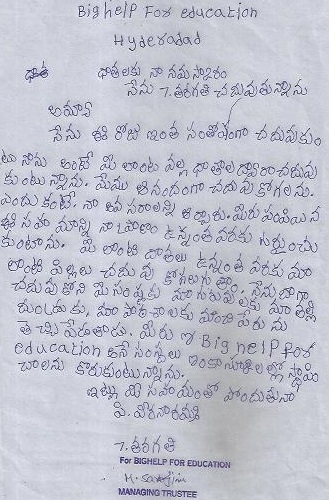 Bighelp For education
Hyderadad
దాత దాతలకు నా నమస్కారం
నేను 7. తరగతి చదువుతున్నాను
అమ్మా
నేను ఈ రోజు ఇంత సంతోషంగా చదువుకుం
టు నాను అంటే మీ లాంటి వల్ల దాతల ద్వారా చదువు
కుంటున్నాను. మేము ఆనందంగా చదువు కోగలను.
ఎందుకంటే. నా అవసరాలన్ని తీర్చారు. మీరు చేసిన
ఈ సహా యాన్ని నా ప్రాణం ఉన్నంత వరకు గుర్తుంచు
కుంటాను. మీ లాంటి దాతలు ఉన్నంత వరకు మా
లాంటి పిల్లలు చదువు కోగలుగుతాం. నేను బాగా
చదువు కొని మీ సంస్థకు మా గురువులకు మా తల్లి
దండ్రులకు, మంచి పేరును
తెచ్చి పెడతాను. మీరు ఈ Big help For
education అనే సంస్థలు ఇంకా
చాలను కోరుకుంటున్నాను.
ఇట్లు మీ సహాయంతో పొందుతున్న
పి. వీరనారమ్మ
7. తరగతి
For BIGHELP FOR EDUCATION
MANAGING TRUSTEE